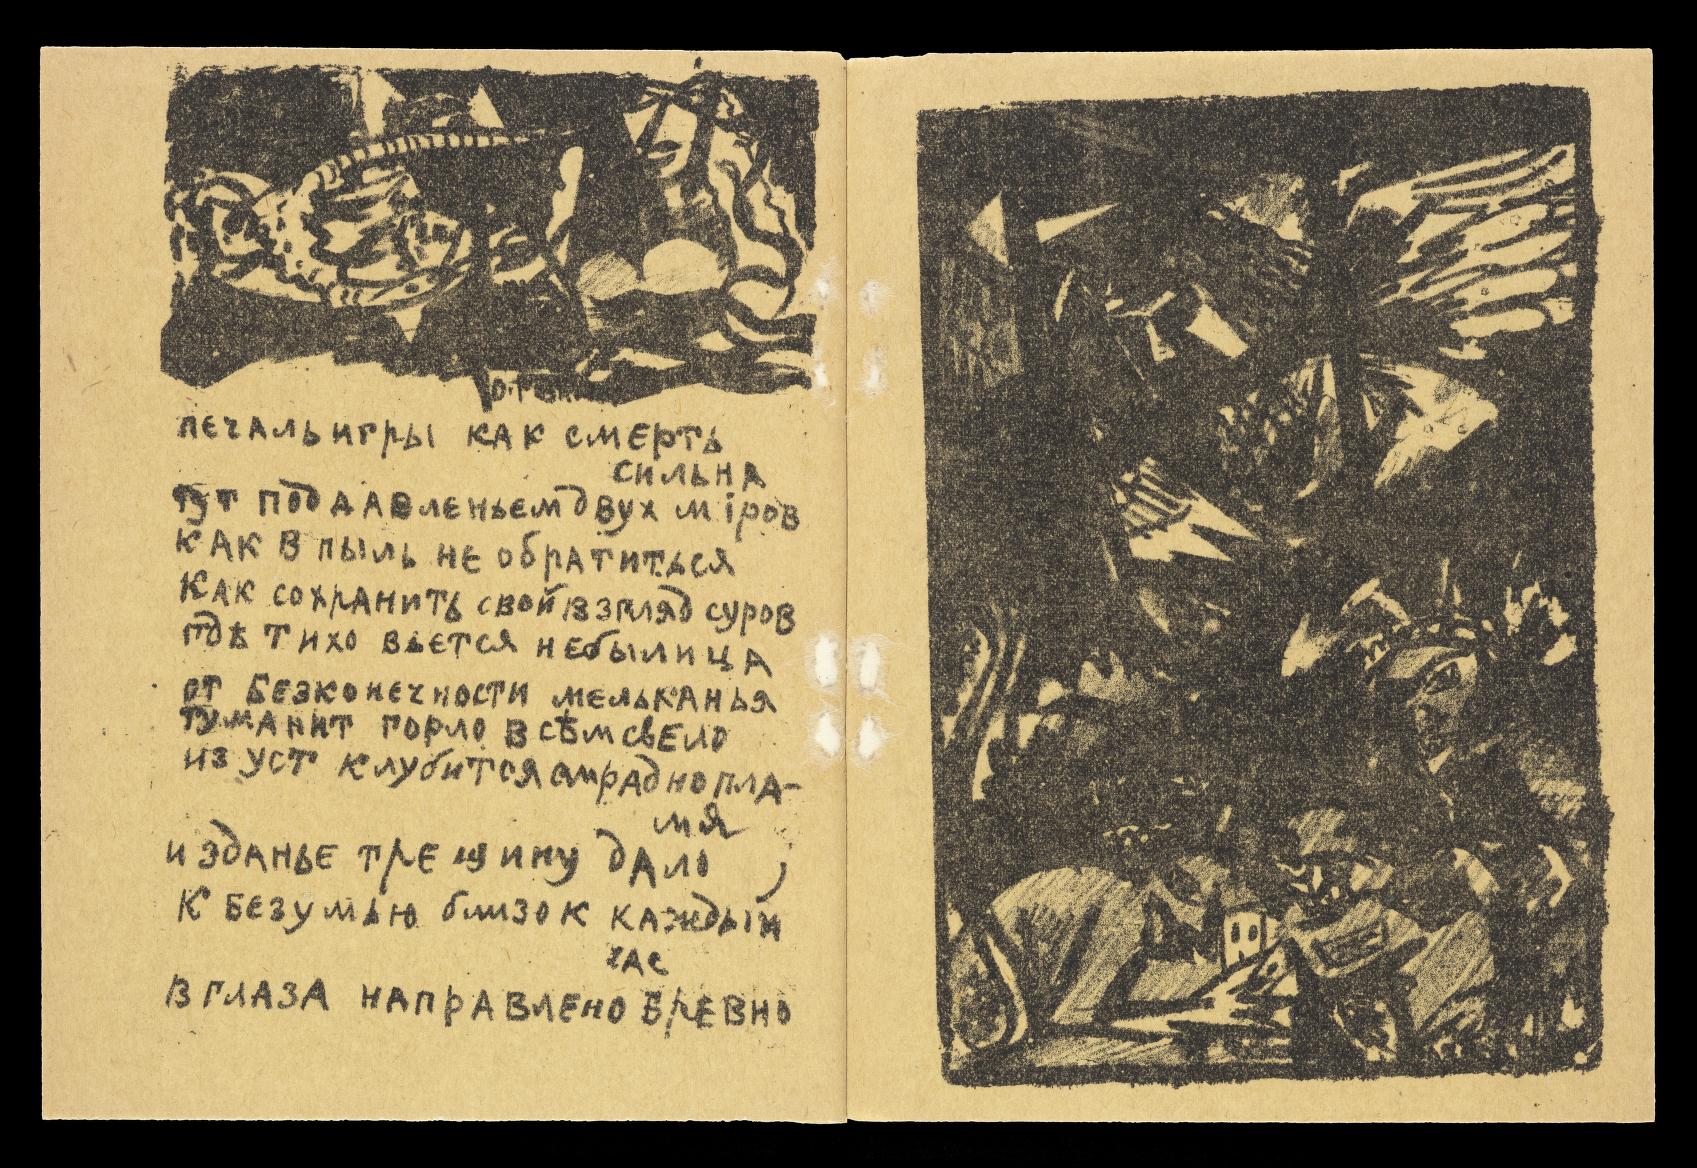 О. Р
печаль игры как смерть
сильна
тут под давленьем двух мiров
как в пыль не обратиться
как сохранить свой взгляд суров
гдѣ тихо вьется небылица
от безконечности мельканья
туманит горло всѣм свело
из уст клубится смрадно пла-
мя
и зданье трещину дало,
к безумью близок каждый
час
в глаза направлено бревно